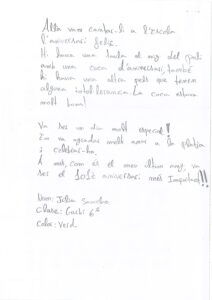 Allà vam cantar-li a l'escola
l'aniversari feliç.
Hi havia una taula al mig del pati
amb una coca d'aniversari, també
hi havia una altra pels que tenen
alguna intol·lerancia. La coca estava
molt bona!
Va ser un dia molt especial!
Em va agradar molt anar a la platja
i celebrar-ho.
A més, com és el meu últim any, va
ser el aniversari més important!!
Nom: Júlia
Classe: 6è
Color: Verd